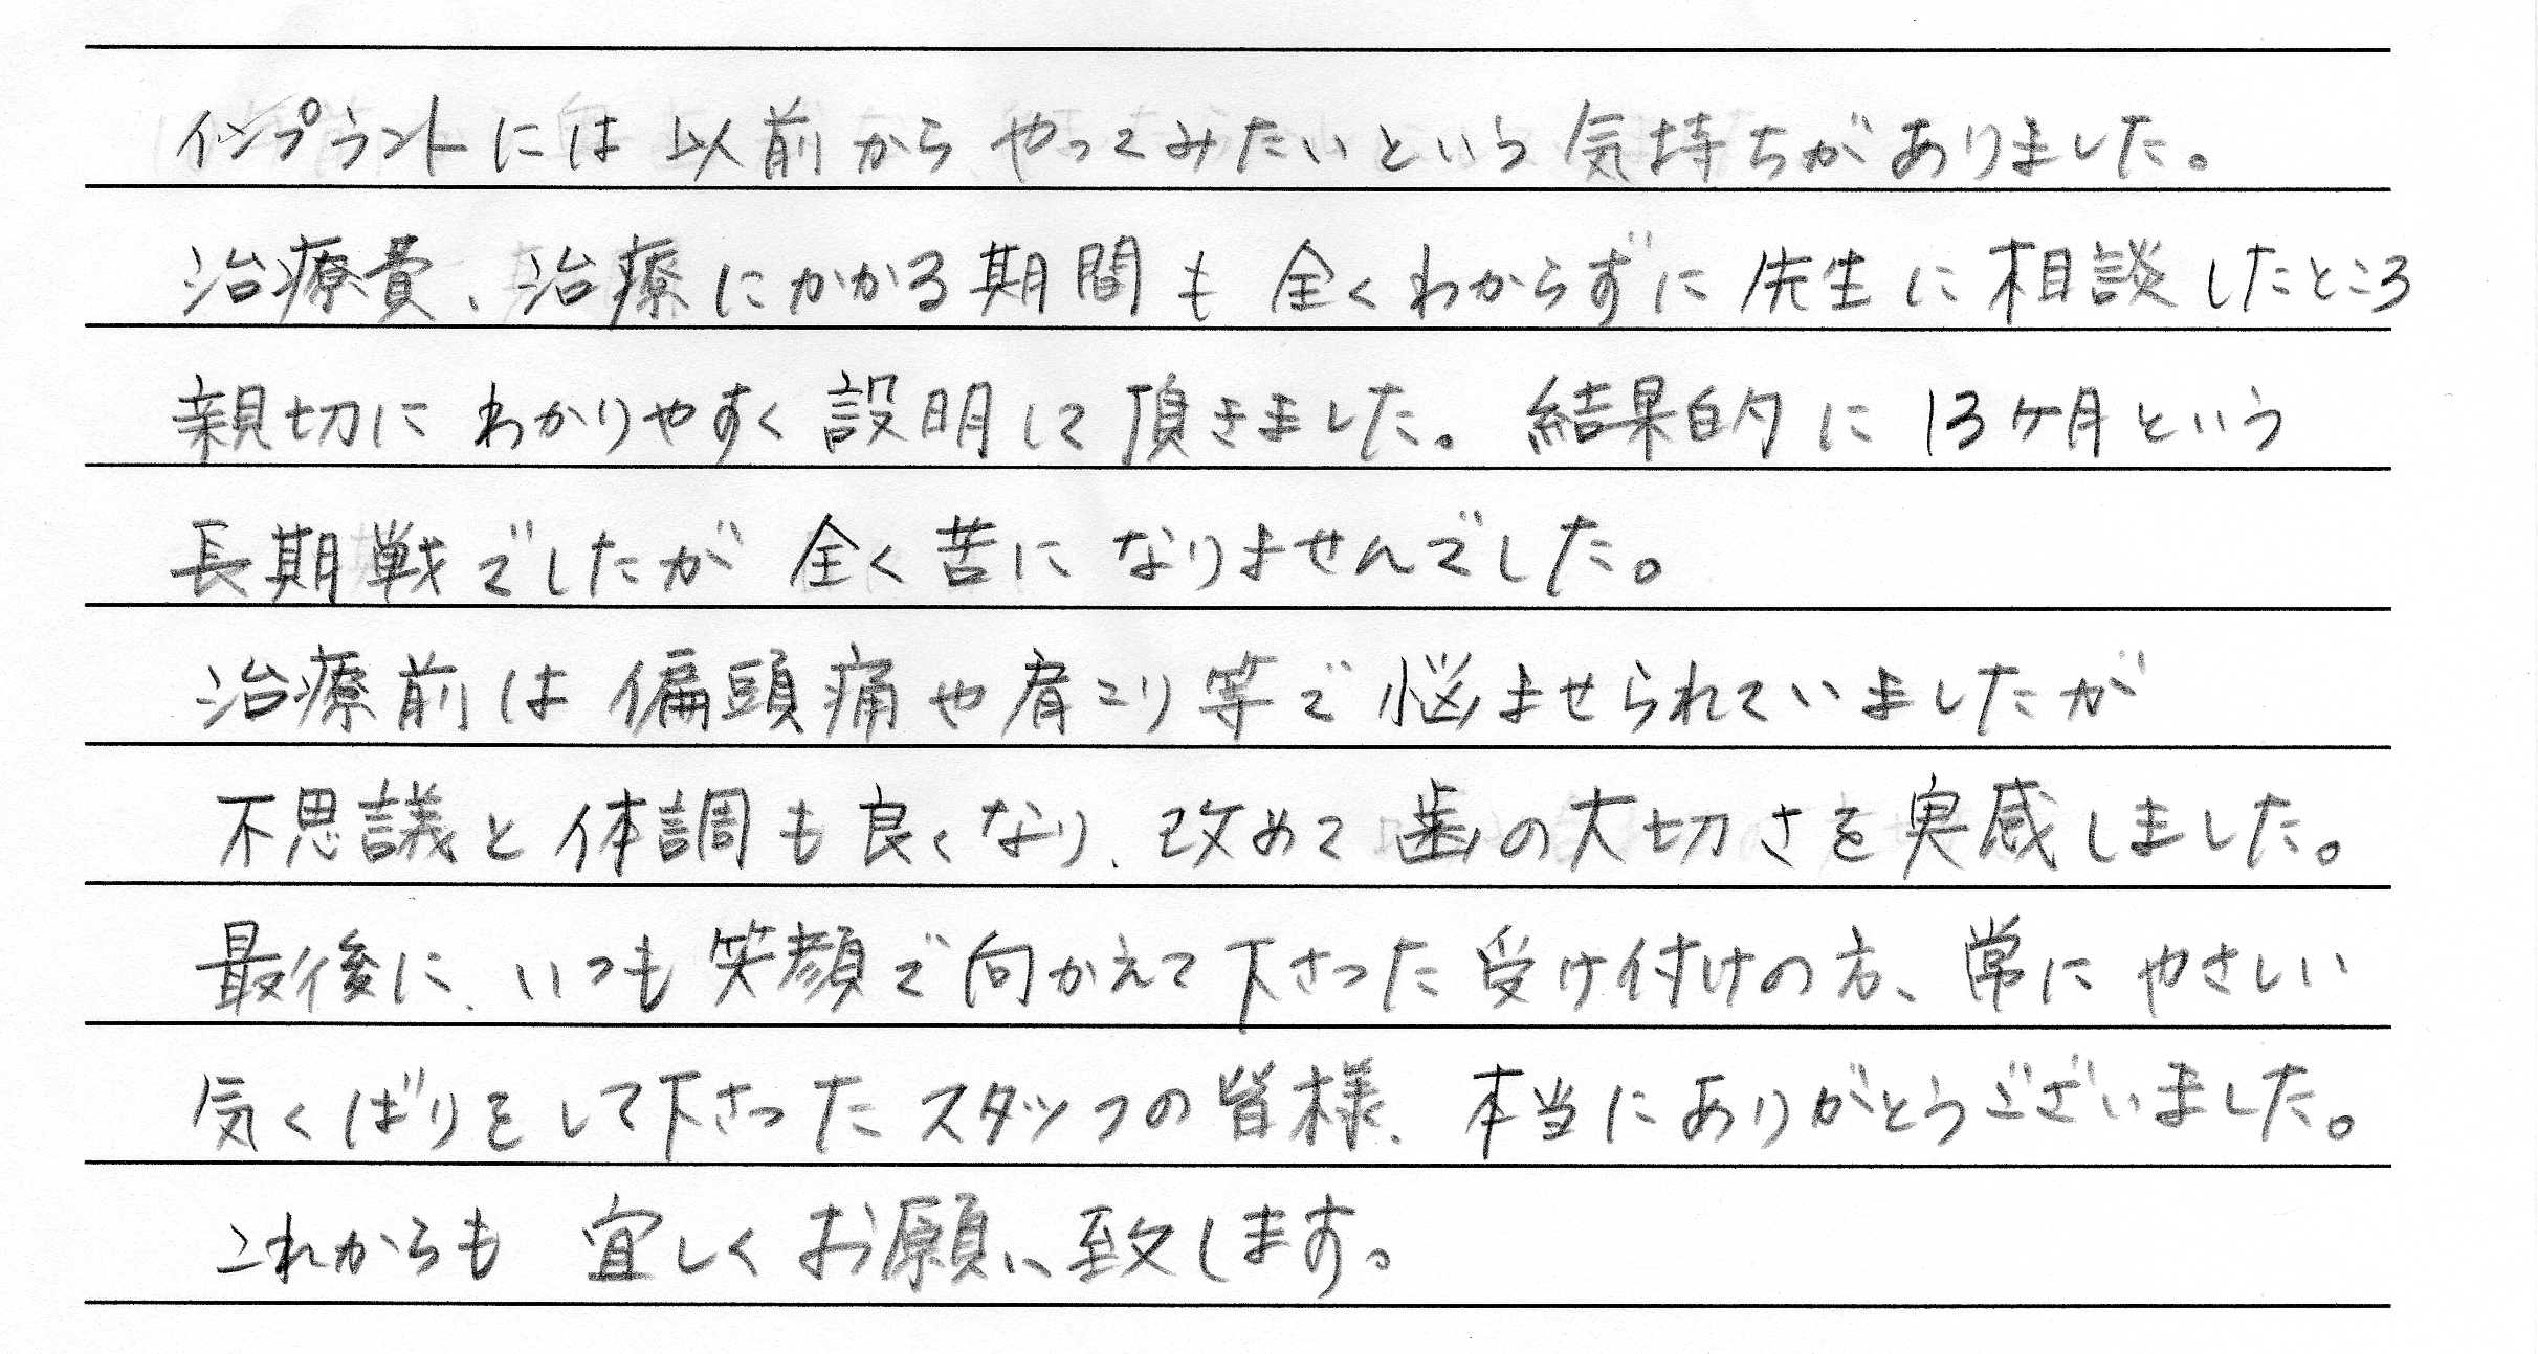 インプラントには以前からやってみたいという気持ちがありました。
治療費、治療にかかる期間も全くわからずに先生に相談したところ
親切にわかりやすく設明して頂きました。結果的に13ヶ月という
長期戦でしたが全く苦になりませんでした。
治療前は偏頭痛や肩こり等で悩ませられていましたが
不思議と体調も良くなり、改めて歯の大切さを実感しました。
最後に、いつも笑顔で向かえて下さった受け付けの方、常にやさしい
気くばりをして下さったスタッフの皆様、本当にありがとうございました。
これからも宜しくお願い致します。